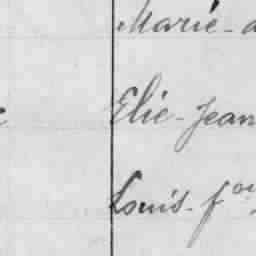 Marie-
Elie-Jean
Louis-f